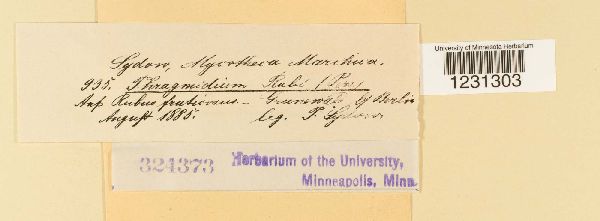 Sydow, Mycotheca Marchica.
935. Phragmidium Rubi (Pers.)
Auf Rubus fruticosus – Grunewald bei Berlin
August 1885. leg. P. Sydow
University of Minnesota Herbarium
1231303
324373 Herbarium of the University,
Minneapolis, Minn.